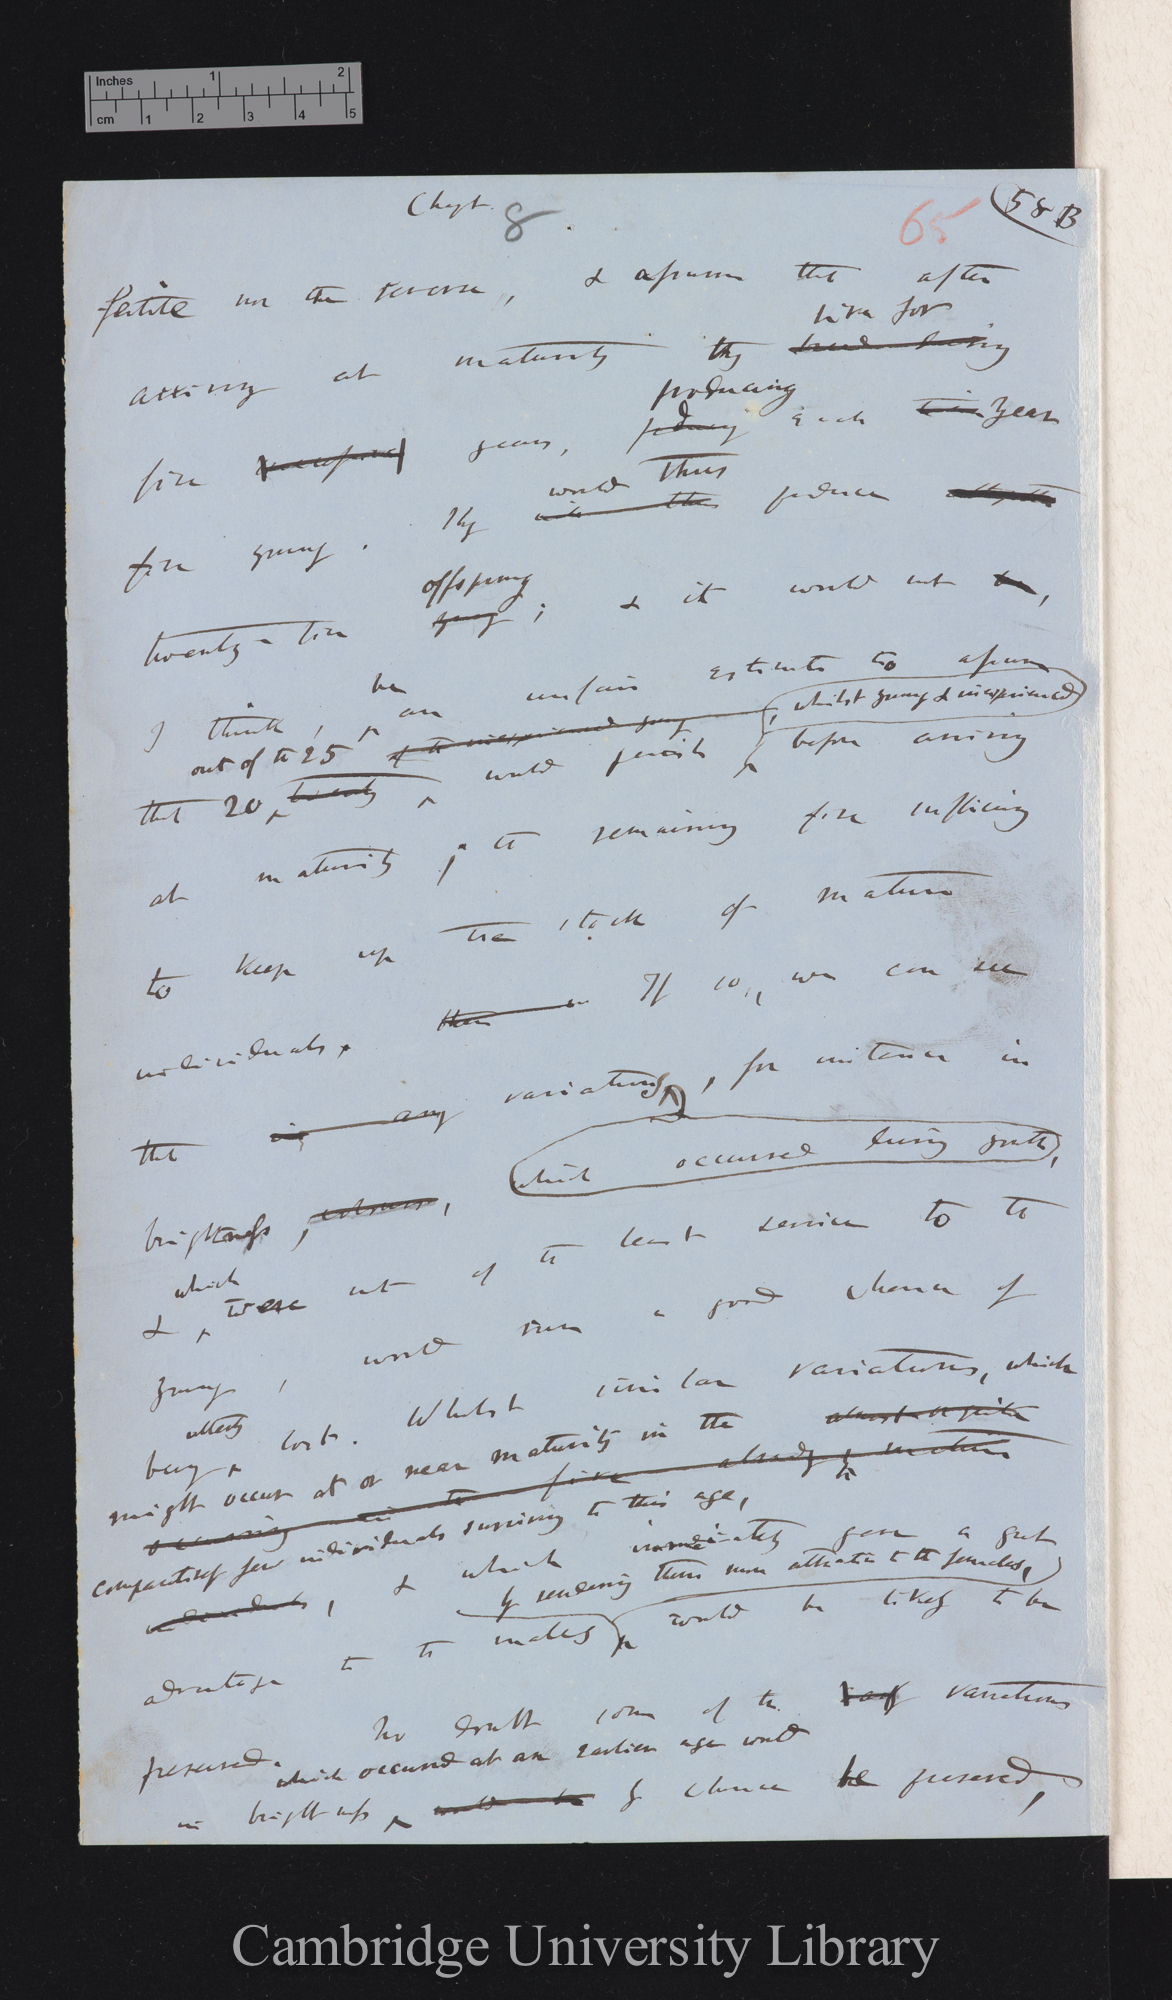 Inches 1 2
cm 1 2 3 4 5
Chapt. 8
65
58 B
fertile nor the reverse, & assume that after
live for
arriving at maturity they
producing
five years, each year
would thus
five young. They produce
offspring
twenty-five young; & it would not be,
be
I think, an unfair estimate to assume
out of the 25
whilst young & inexperienced
that 20, twenty would perish before arriving
at maturity; the remaining five sufficing
to keep up the stock of mature
individuals. If so, we can see
that in any variations, for instance in
which occurred during youth,
brightness,
which
& were not of the least service to the
young, would run a good chance of
utterly
being lost. Whilst similar variations, which
might occur at or near maturity in the
occurring in the five already
comparatively few individuals surviving to this age,
& which immediately gave a great
by rendering them more attractive to the females,
advantage to the males would be likely to be
preserved. No doubt some of the variations
which occurred at an earlier age would
in brightness would be by chance be preserved,
Cambridge University Library